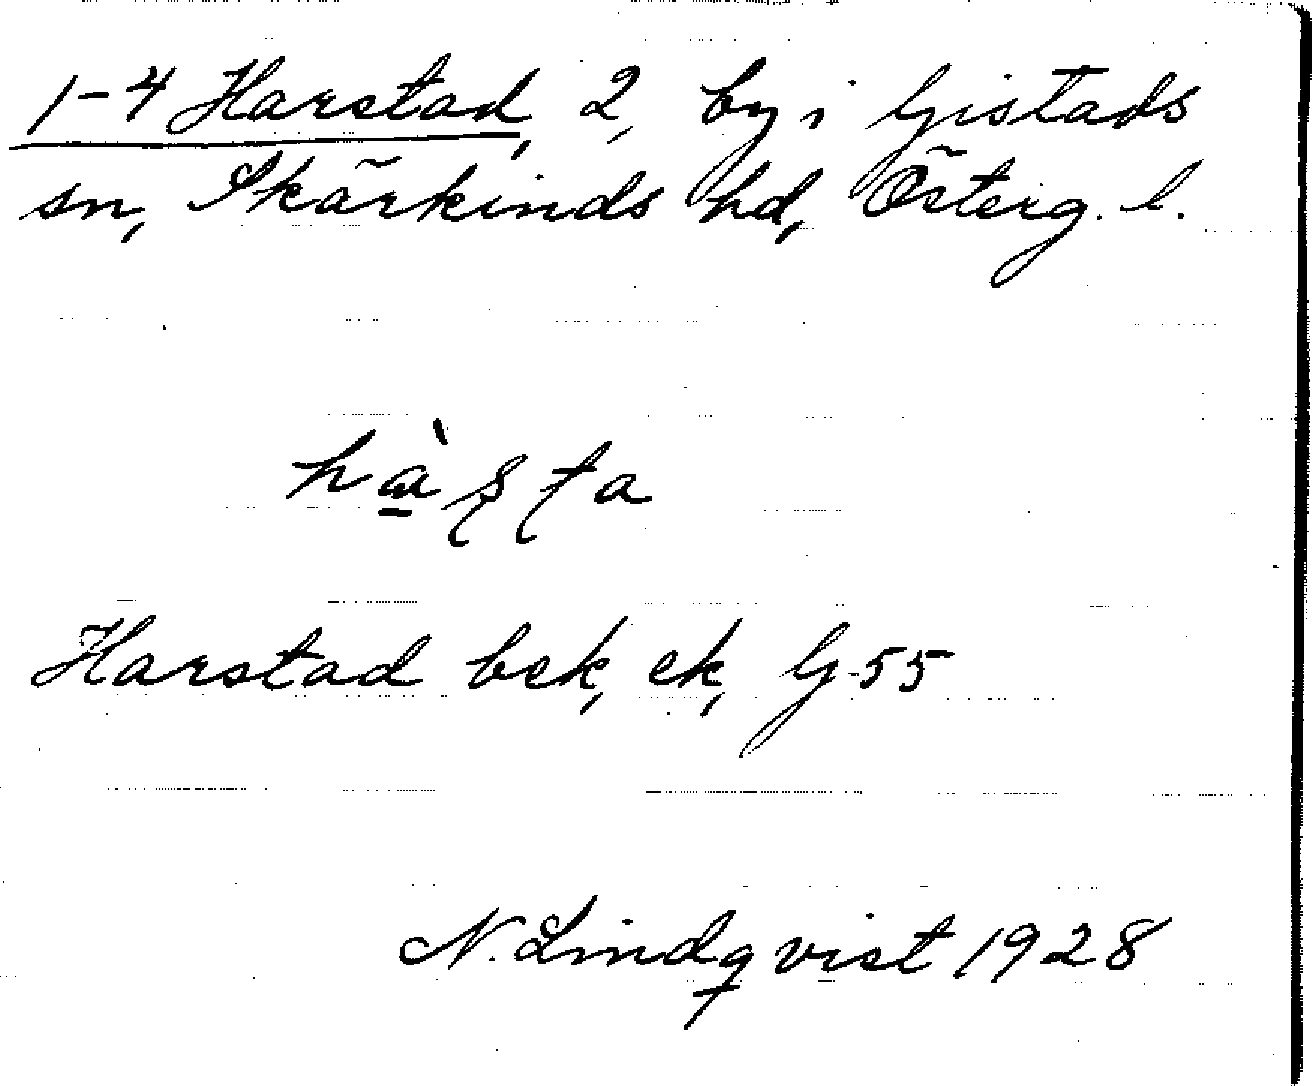 1-4 Harstad, 2, by i Gistads
sn, Skärkinds hd, Österg. l.
hà̠ʂʈa
Harstad bek, ek, G 55
N. Lindqvist 1928